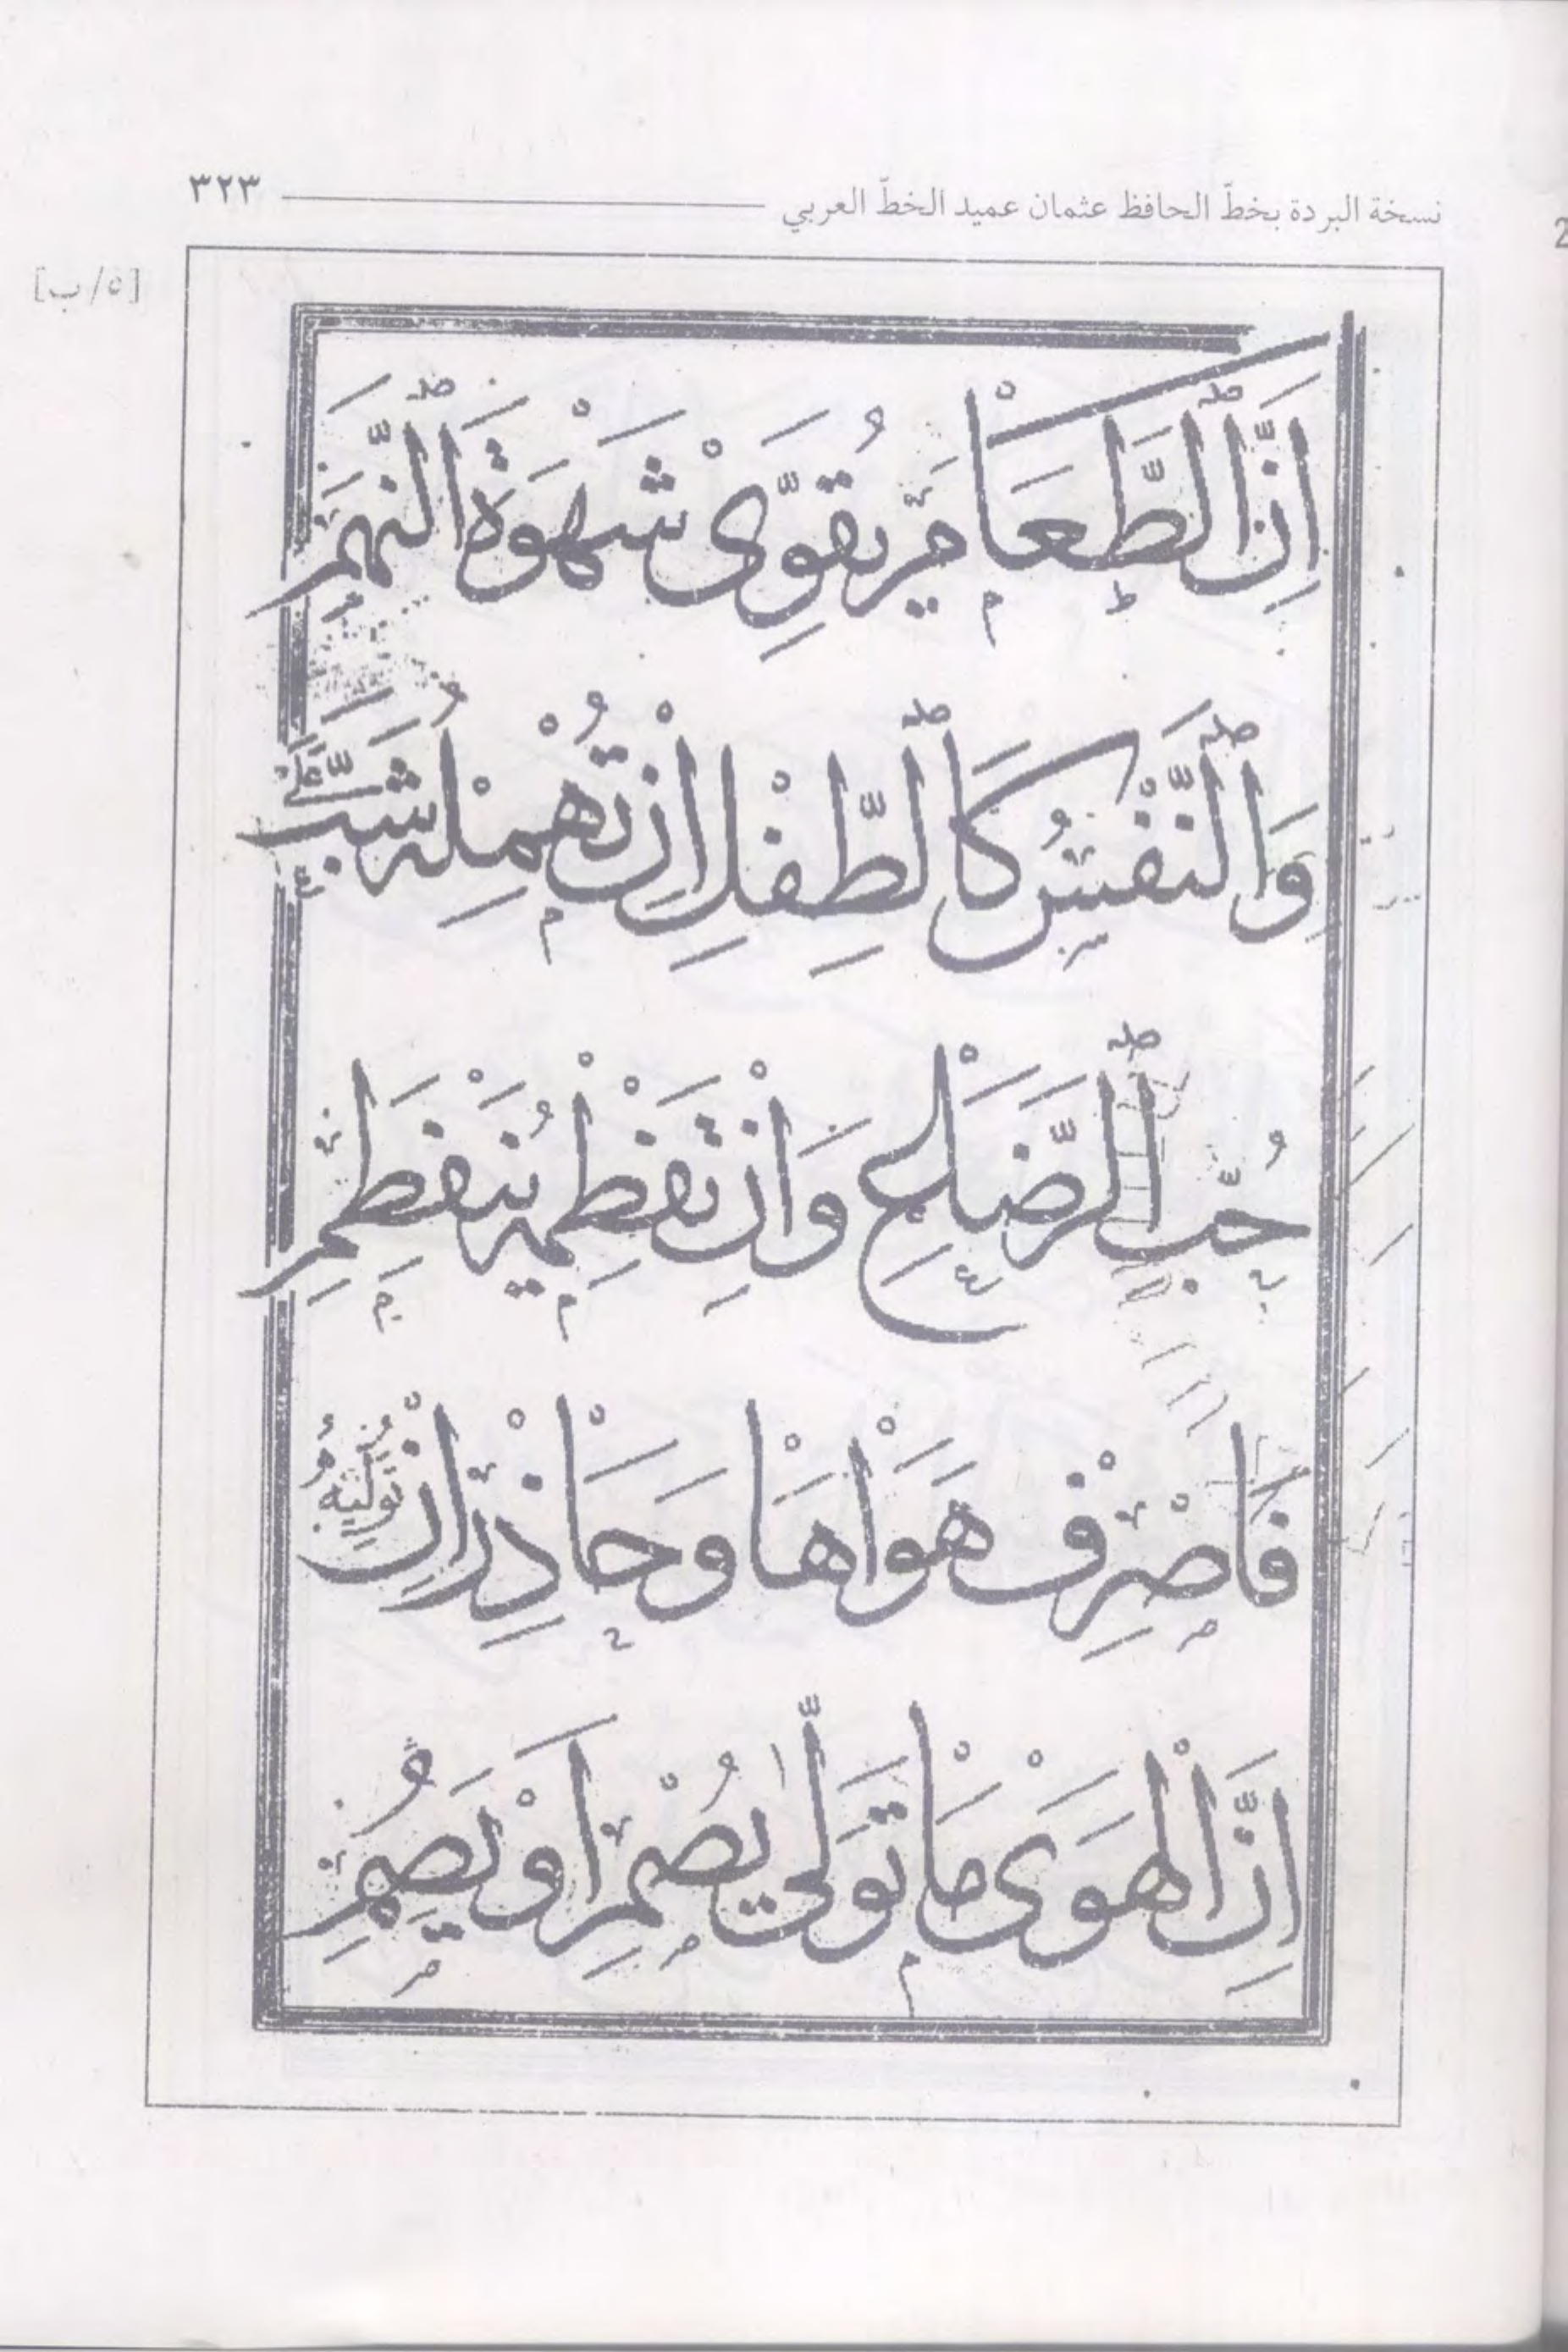 نسخة البردة بخطّ الحافظ عثمان عميد الخطّ العربي ٣٢٣
[٥/ب]
اِنَّ الطَّعَامَ يُقَوِّى شَهْوَةَ النَّهِمِ
وَالنَّفْسُ كَالطِّفْلِ اِنْ تُهْمِلْهُ شَبَّ عَلَى
حُبِّ الرَّضَاعِ وَاِنْ تَفْطِمْهُ يَنْفَطِمِ
فَاصْرِفْ هَوَاهَا وَحَاذِرْ اَنْ تُوَلِّيَهُ
اِنَّ الْهَوَى مَا تَوَلَّى يُصْمِ اَوْ يَصِمِ